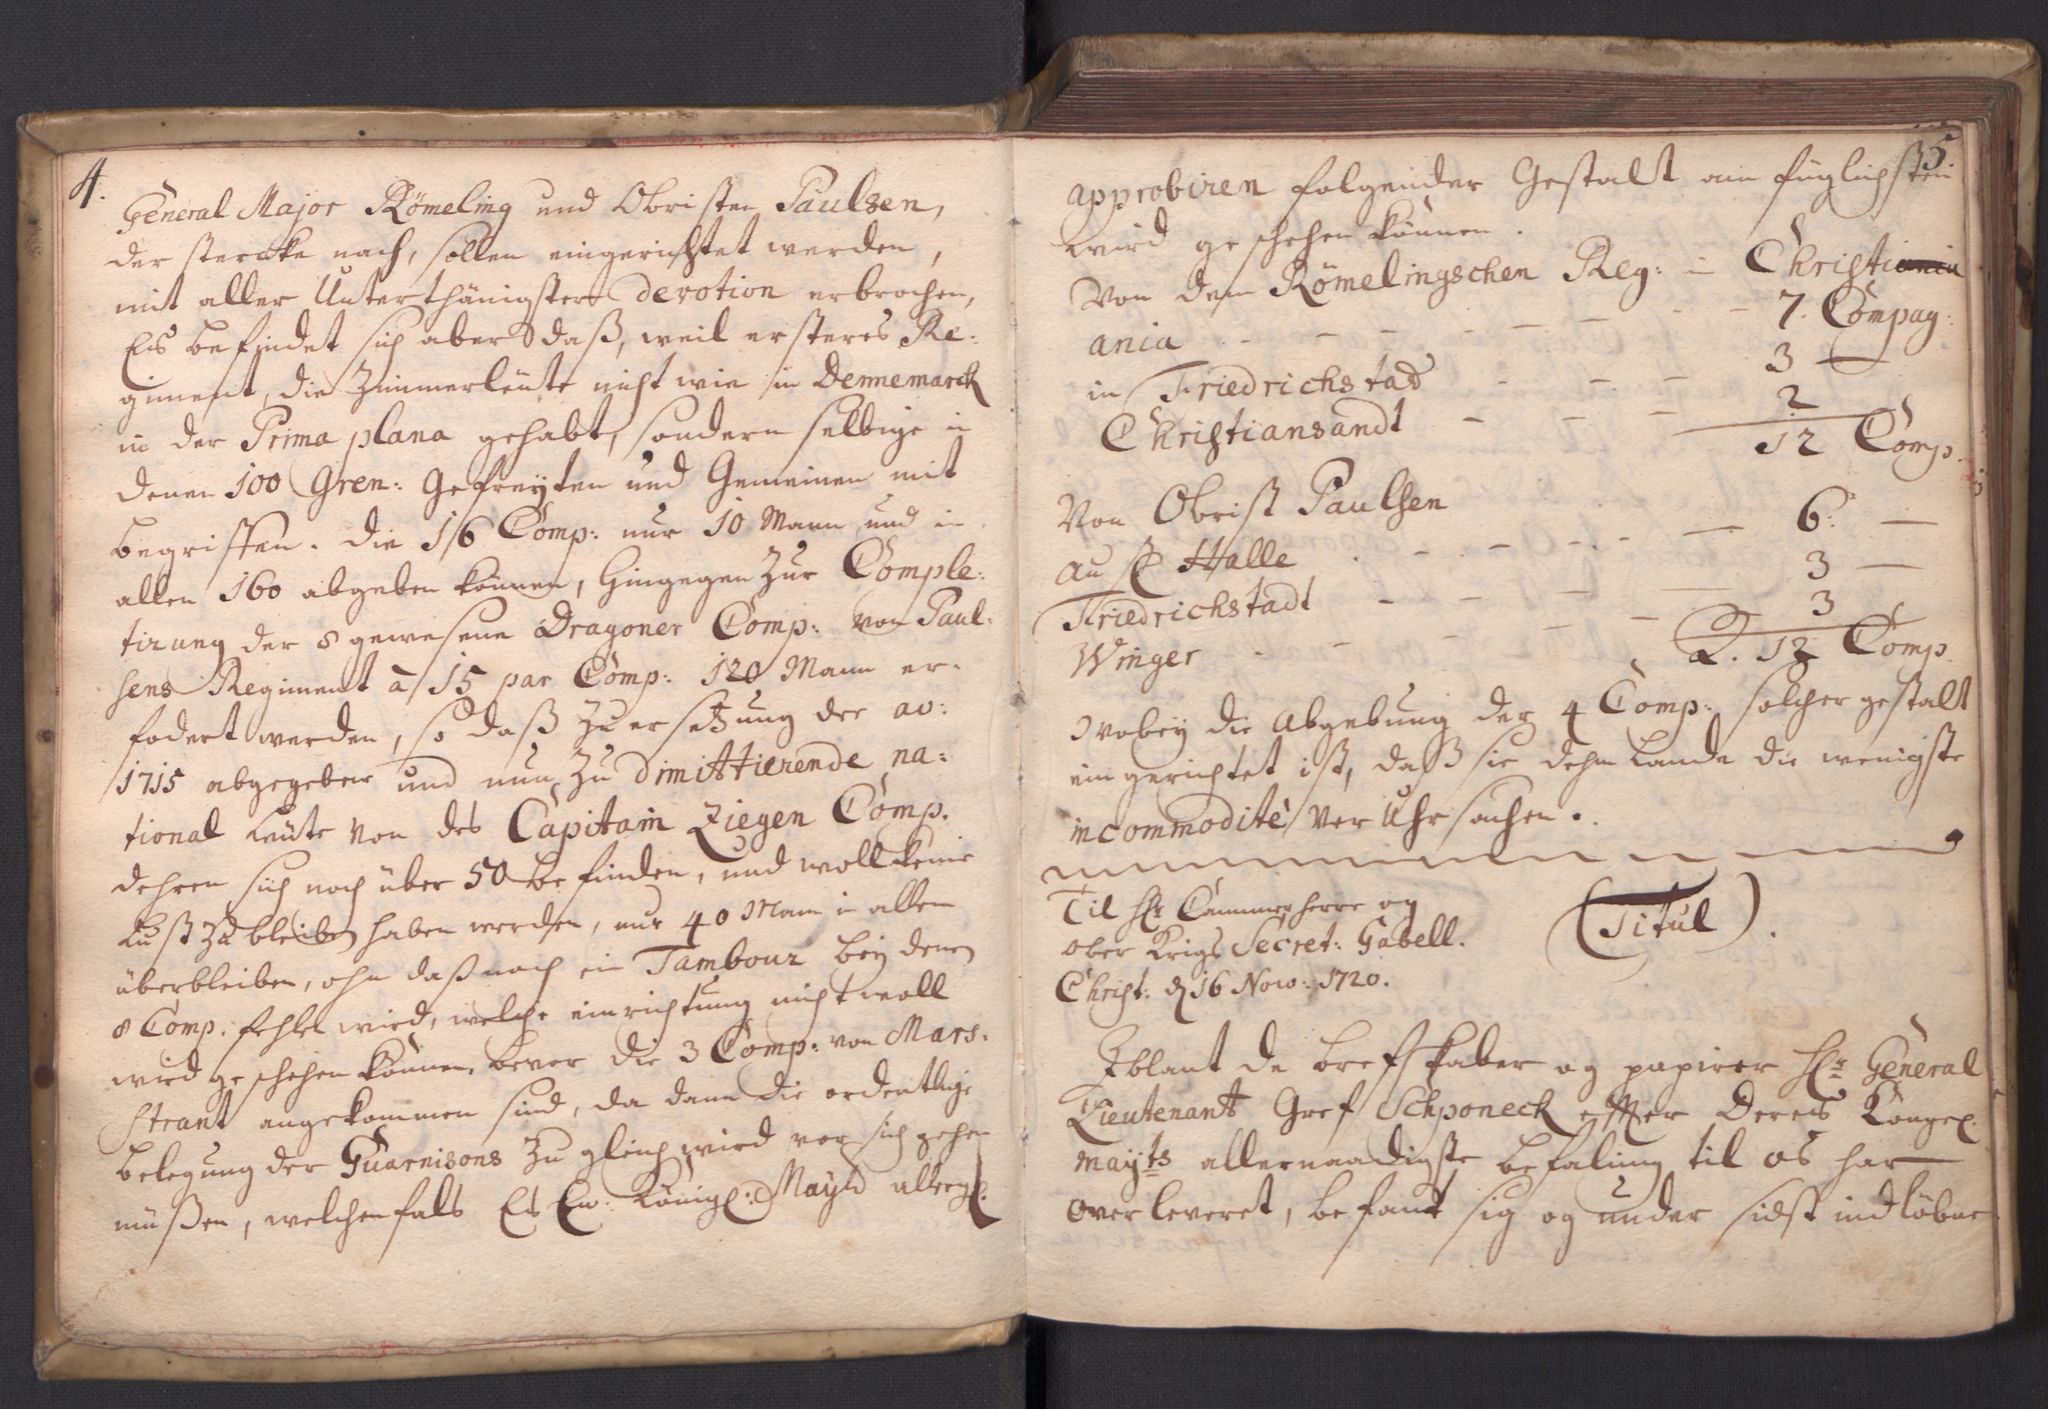 4.
General Major Römeling und Obristen Paulsen,
der stercke nach, sollen eingerichtet werden,
mit aller Unterthänigster devotion erbrochen,
Es befindet sich aber daß, weil ersteres Re:
giment, die Zimmerleüte nicht wie in Dennemarck
in der Prima plana gehabt, sondern selbige in
denen 100 Gren: Gefreyten und Gemeinen mit
begriffen. die 16 Comp: nur 10 Mann und in
allen 160 abgeben können, hingegen zur Comple:
tirung der 8 gewesene Dragoner Comp: von Paul:
sens Regiment à 15 par Comp: 120 Mann er-
fodert werden, so daß zu ersetzung der ao:
1715 abgegeben und nun zu dimittierende na:
tional Leüte von des Capitain Ziegen Comp.
dehren sich noch über 50 befinden, und woll keine
Lust zu bleiben haben werden, nur 40 Mann in allem
überbleiben, ohn daß noch ein Tambour bey denen
8 Comp. fehlen wird, welche einrichtung nicht woll
wird geschehen können, bevor die 3 Comp: von Mars:
strant angekommen sind, da dann die ordentlige
belegung der Guarnisons zugleich wird vor sich gehen
müßen, welchenfals Es Ew: Königl: Mayts allergl:
5.
approbiren folgender Gestalt am füglichsten
wird geschehen können.
Von dem Römelingschen Reg: in Christiania
ania - - - 7. Compag:
in Friedrichstad - - - 3 —
Christiansandt - - - 2
12 Comp.
Von Obrist Paulsen
auf Halle - - - 6. —
Friedrichstadt - - - 3 —
Winger - - - 3
12 Comp.
wobey die Abgebung der 4 Comp: solcher gestalt
eingerichtet ist, daß sie dehm Lande die wenigste
incommoditè verUhrsachen.
Til Hr Cammerherre og
ober Krigs Secret: Gabell. (Titul).
Christ: d 16 Nov: 1720.
Iblant de brefskaber og papirer Hr General
Lieutenant Gref Schponeck effter Deres Kongel.
mayts allernaadigste befaling til os har
overleveret, befant sig og under sidst indløbne